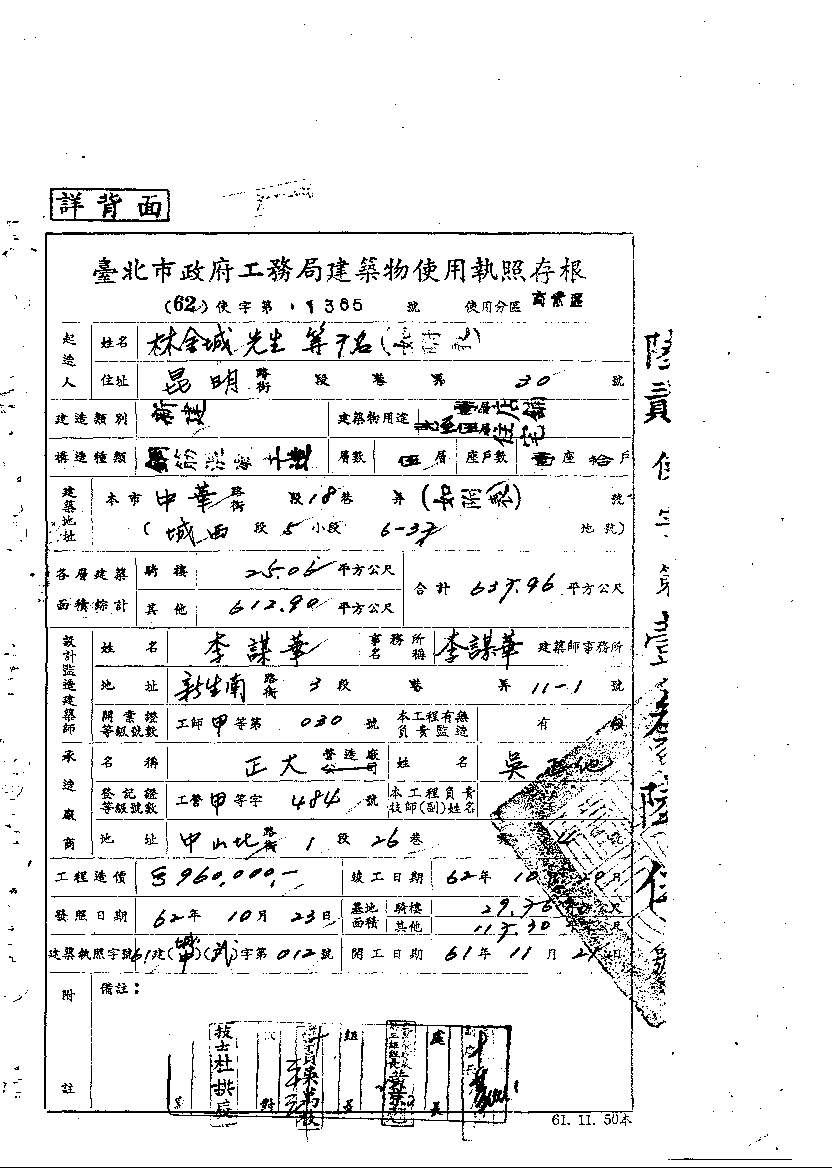 詳背面
臺北市政府工務局建築物使用執照存根
(62)使字第1385號 使用分區 商業區
起造人 姓名 林金城先生等 名(如附表)
住址 昆明 路街 段 巷 弄 30 號
建造類別 新建 建築物用途 壹層店舖 貳至伍層住宅
構造種類 鋼筋混凝土造 層數 伍層 座戶數 壹座拾戶
建築地址 本市 中華 路街 段 18 巷 弄 號
(城西 段 5 小段 6-37 地號)
各層建築面積綜計 騎樓 25.06 平方公尺 合計 637.96 平方公尺
其他 612.90 平方公尺
設計監造建築師 姓名 李謀華 事務所名稱 李謀華 建築師事務所
地址 新生南 路街 3 段 巷 弄 11-1 號
開業證等級號數 工師甲等第 030 號 本工程有無負責監造 有
承造廠商 名稱 正大 營造廠公司 姓名 吳
登記證等級號數 工營甲等字 484 號 本工程負責技師(副)姓名
地址 中山北 路街 1 段 26 巷 號
工程造價 960,000,- 竣工日期 62年 10月 20日
發照日期 62年 10月 23日 基地面積 騎樓 29.76 平方公尺
其他 117.30 平方公尺
建築執照字號 61建( )(武)字第 012 號 開工日期 61年 11月 2 日
附註 備註:
技士杜拱辰
61.11.50本